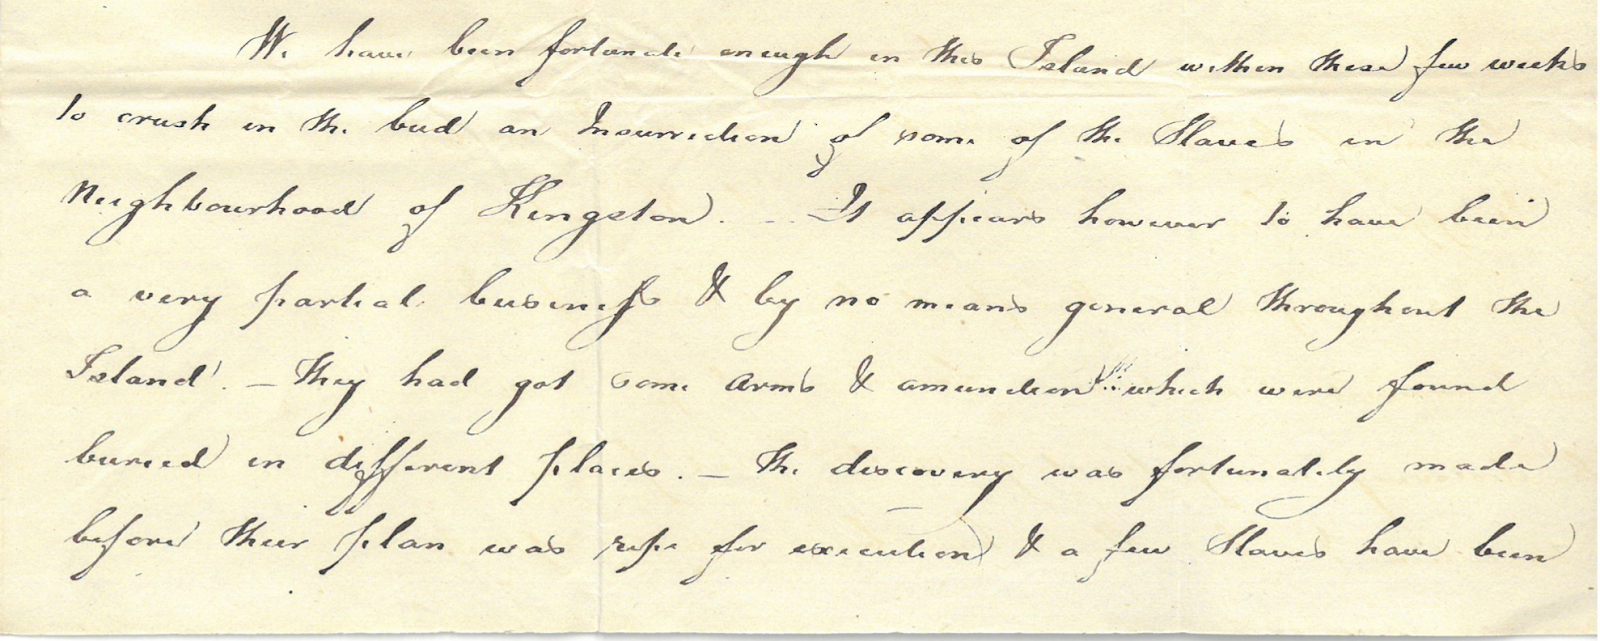 We have been fortunate enough in this Island within these few weeks
to crush in the bud an Insurrection of some of the Slaves in the
Neighbourhood of Kingston. - It appears however to have been
a very partial business & by no means general throughout the
Island. - They had got some Arms & amunition which were found
buried in different places. - The discovery was fortunately made
before their plan was ripe for execution & a few Slaves have been